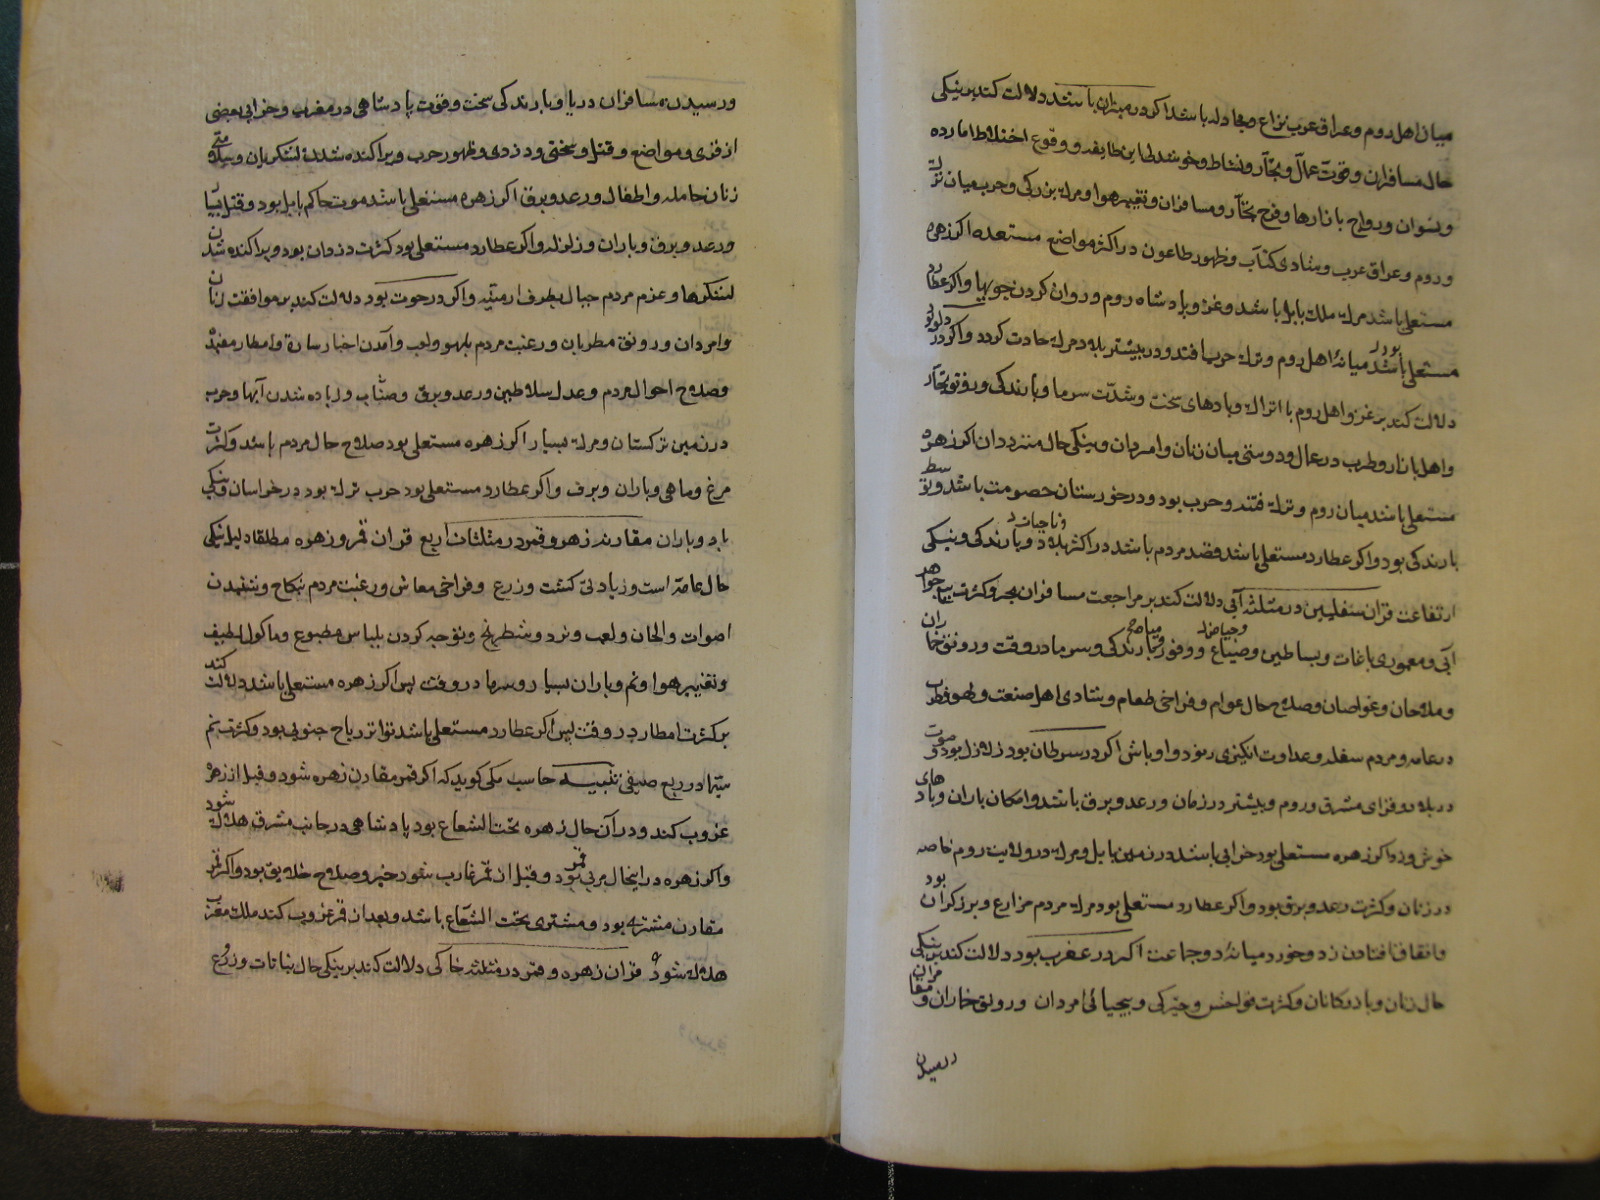 میان اهل روم و عراق عرب نزاع و مجادله باشد اکر در میزان باشد دلالت کند بر نیکی
حال مسافران و قوت عمال و تجار و نشاط و خوشدلی این طایفه و وقوع اختلاط امارده
و نسوان و رواج بازارها و فرح تجار و مسافران و تغییر هوا و مرك بزرکی و حرب میان ترك
و روم و عراق عرب و شادی کتاب و ظهور طاعون در اکثر مواضع مستعده اکر زهره
مستعلی باشد مرك ملك بابل باشد و غزو پادشاه روم و روان کردن جویها و اکر عطارد
مستعلی باشد میانهٔ اهل روم و ترك حرب افتد و در بیشتر بلاد مرك حادث کردد و اکر در دلو بود
دلالت کند بر غزو اهل روم با اتراك و بادهای سخت و شدت سرما و بارندکی و رونق تجار
و اهل بازار و طرب در عمال و دوستی میان زنان و امردان و نیکی حال مترددان اکر زهره
مستعلی باشد میان روم و ترك فتند و حرب بود و در خورستان خصومت باشد و توسط
بارندکی بود و اکر عطارد مستعلی باشد قصد مردم باشد در اکثر بلاد و بارندکی و نیکی
ارتفاعت قران سفلیین در مثلثه آبی دلالت کند بر مراجعت مسافران بحر و کثرت بیع جواهر
آبی و معموری باغات و بساطین و ضیاع و وفور بارندکی و سرما در وقت و رونق خماران
و ملاحان و غواصان و صلاح حال عوام و فراخی طعام و شادی اهل صنعت و لهو و طرب
در عامه و مردم سفله و عداوت انکیزی رنود و اوباش اکر در سرطان بود زلازل بود و موت
در بلاد و قرای مشرق و روم و بیشتر در زمان و رعد و برق باشد و امکان باران و بادهای
خوش وزد و اکر زهره مستعلی بود خرابی باشد در زمین بابل و مرك در ولایت روم خاصه
در زنان و کثرت رعد و برق بود و اکر عطارد مستعلی بود مرك مردم مزارع و برزکران بود
و اتفاق افتادن زد و خورد میانهٔ دو جماعت اکر در عقرب بود دلالت کند بر نیکی
حال زنان و بازرکانان و کثرت فواحش و خیرکی و بیحیائی امردان و رونق خماران و مقامران
ورسیدن
ورسیدن مسافران دریا و بارندکی سخت و قوت پادشاهی در مغرب و خرابی بعضی
از قری و مواضع و قتل و سختی و دزدی و ظهور حرب و پراکنده شدن لشکریان و
زنان حامله و اطفال و رعد و برق اکر زهره مستعلی باشد موت حاکم بابل بود و قتل
و رعد و برق و باران و زلازل و اکر عطارد مستعلی بود کثرت دزدان بود و پراکنده شدن
لشکرها و عزم مردم جبال بطرف ارمنیه و اکر در حوت بود دلالت کند بر موافقت زنان
و امردان و رونق مطربان و رغبت مردم بلهو و لعب و آمدن اخبار ساره و امطار مفیده
و صلاح احوال مردم و عدل سلاطین و رعد و برق و ضباب و زیاده شدن آبها و حرب
در زمین ترکستان و مرك بسیار اکر زهره مستعلی بود صلاح حال مردم باشد و کثرت
مرغ و ماهی و باران و برف و اکر عطارد مستعلی بود حرب ترك بود در خراسان و نیکی
باد و باران مقارنه زهره و قمر در مثلثات اربع قران قمر و زهره مطلقا دلیل نیکی
حال عامه است و زیادتی کشت و زرع و فراخی معاش و رغبت مردم بنکاح و شنیدن
اصوات و الحان و لعب و نرد و شطرنج و توجه کردن بلباس مطبوع و ماکول لطیف
و تغییر هوا و نم و باران بسیار و سرما در وقت پس اکر زهره مستعلی باشد دلالت کند
بر کثرت امطار در وقت پس اکر عطارد مستعلی باشد تواتر ریاح جنوبی بود و کثرت نم
سیما در ربع صیفی تنبیه حاسب مکی کوید که اکر قمر مقارن زهره شود و قبل از زهره
غروب کند و در آن حال زهره تحت الشعاع بود پادشاهی در جانب مشرق هلاك شود
و اکر زهره در اینحال مرئی بود و قبل از قمر غارب شود خیر و صلاح خلایق بود و اکر قمر
مقارن مشتری بود و مشتری تحت الشعاع باشد و بعد از قمر غروب کند ملك مغرب
هلاك شود قران زهره و قمر در مثلثه خاکی دلالت کند بر نیکی حال نباتات و زرع